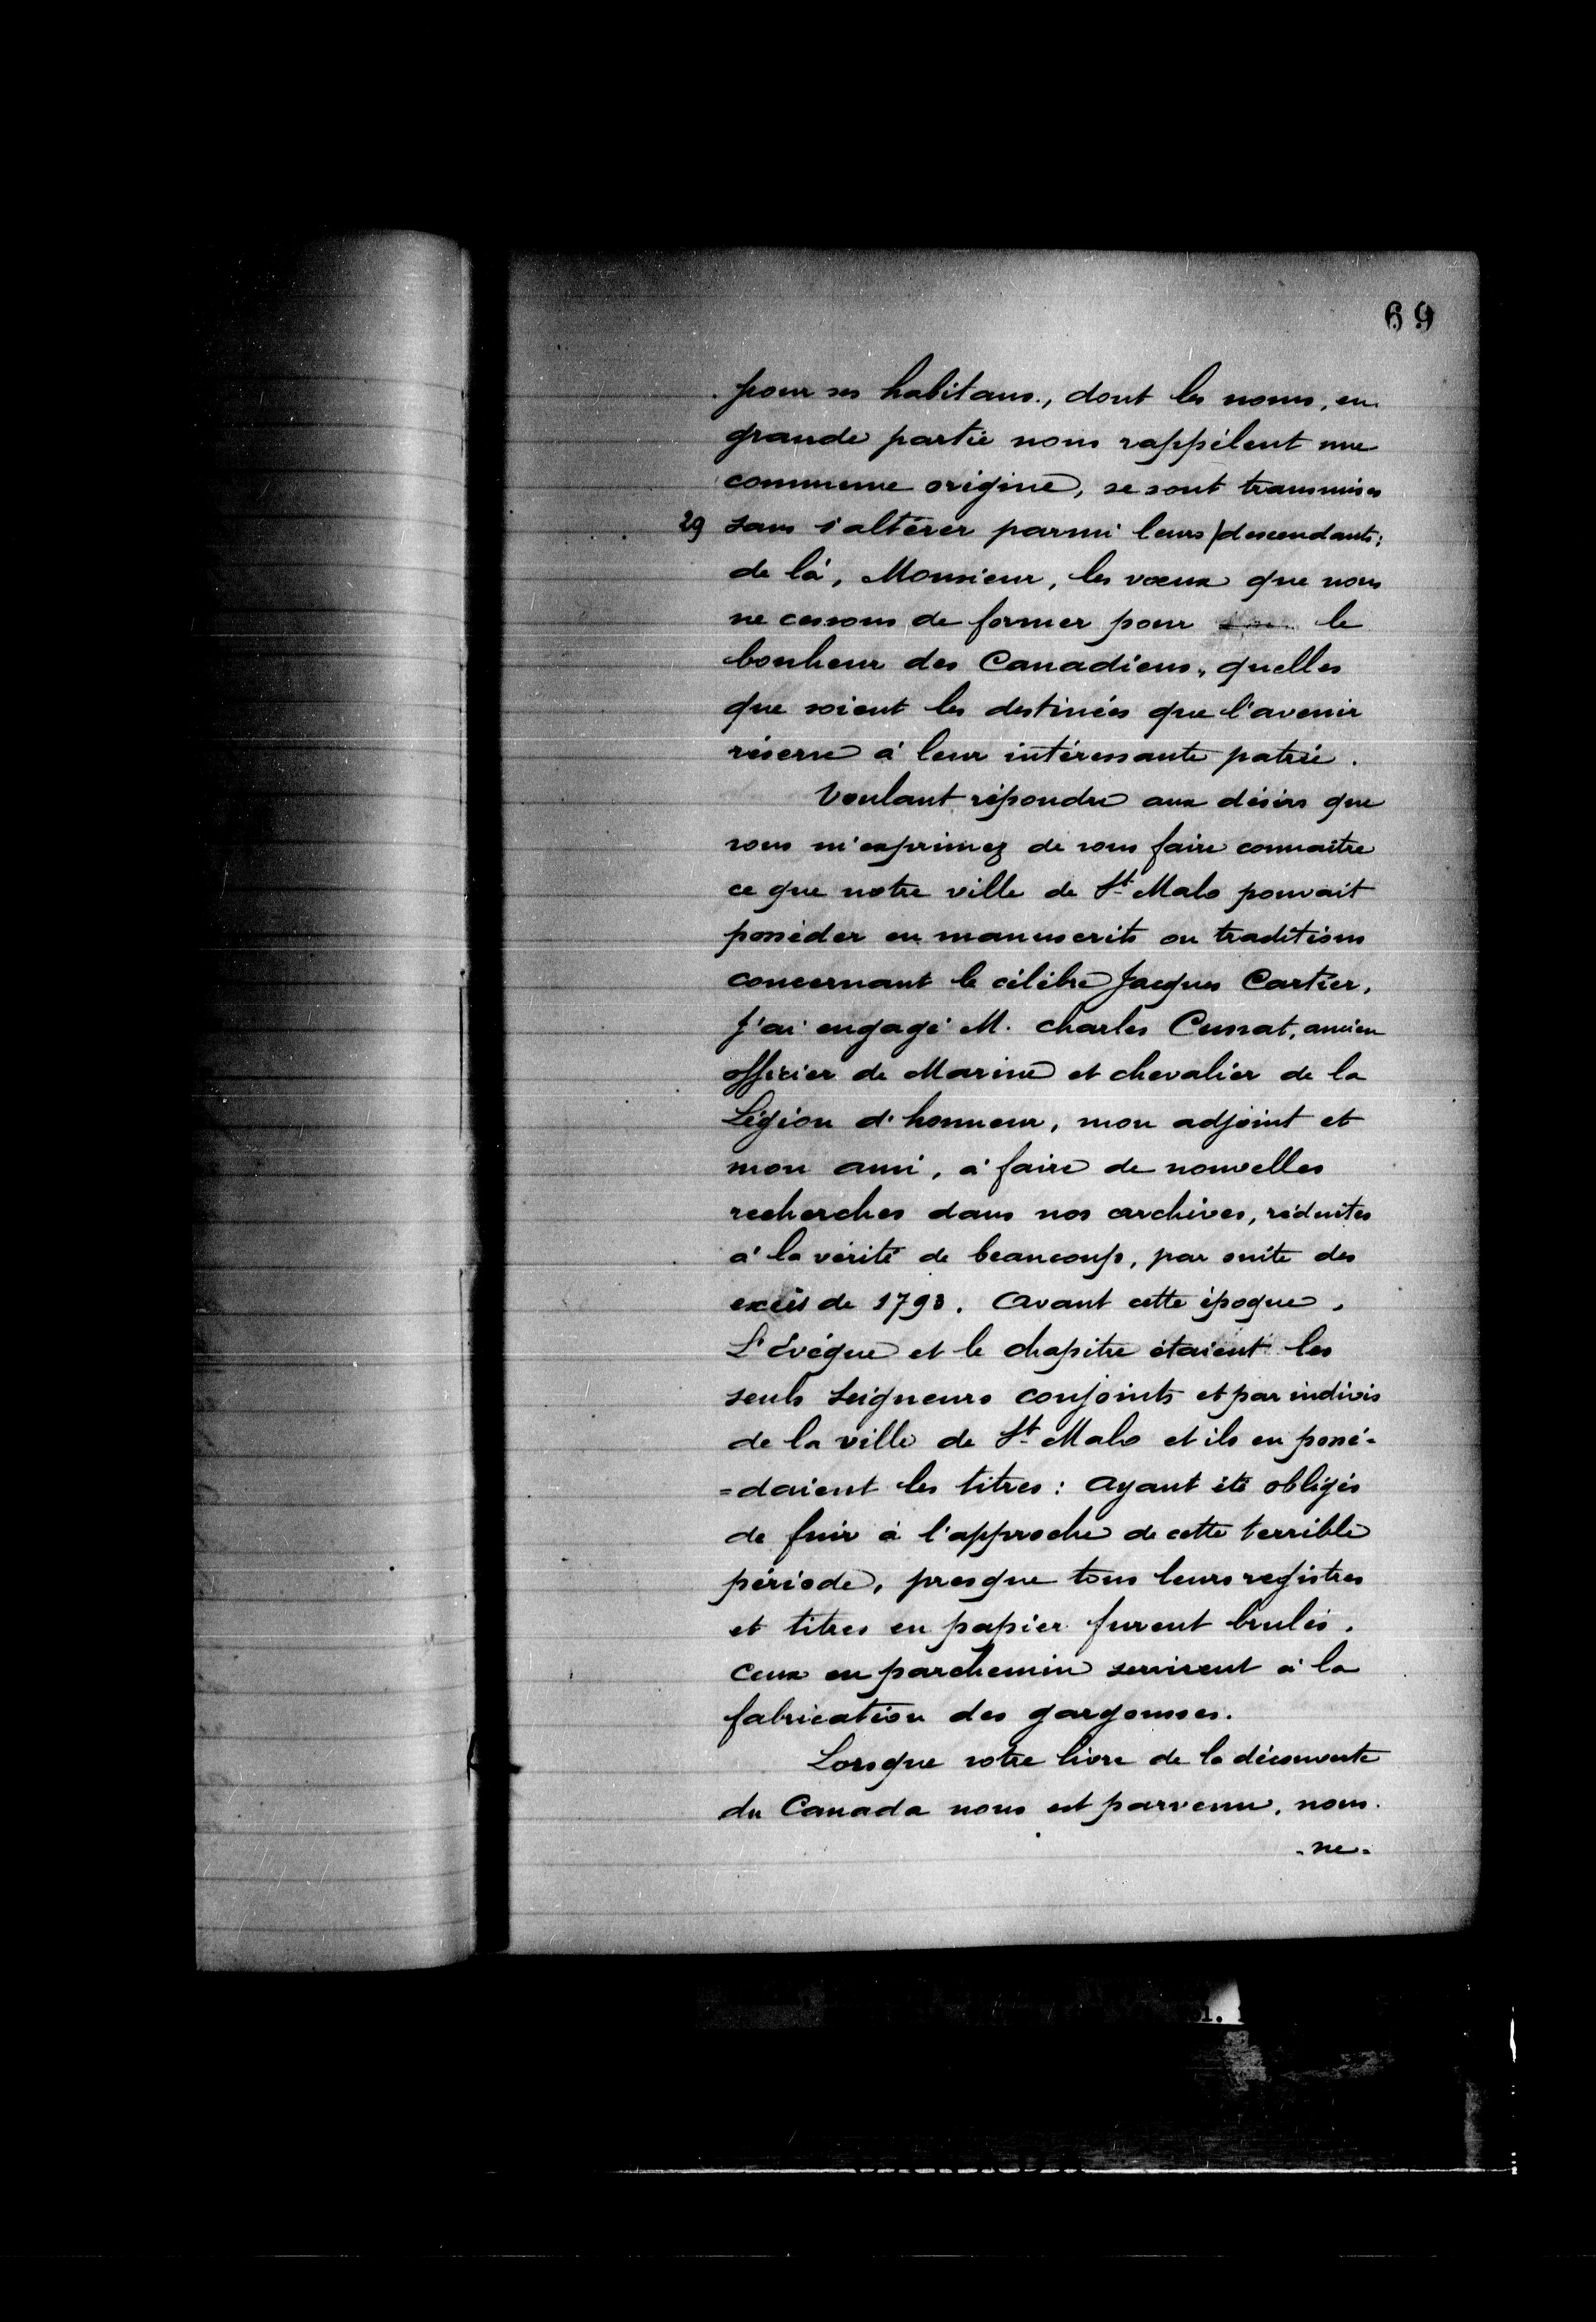 69
pour ses habitans, dont les noms, en
grande partie nous rappélent une
commune origine, se sont transmises
29 sans s'altérer parmi leurs/descendants;
de là, Monsieur, les vœux que nous
ne cessons de former pour le
bonheur des Canadiens, quelles
que soient les destinées que l'avenir
réserve à leur intéressante patrie.
Voulant répondre aux désirs que
vous m'exprimez de vous faire connaitre
ce que notre ville de St Malo pouvait
posséder en manuscrits ou traditions
concernant le célèbre Jacques Cartier,
J'ai engagé M. Charles Cunat, ancien
officier de Marine et chevalier de la
Légion d'honneur, mon adjoint et
mon ami, à faire de nouvelles
recherches dans nos archives, réduites
à la vérité de beaucoup, par suite des
excès de 1793. Avant cette époque,
L'Evêque et le chapitre étaient les
seuls Seigneurs conjoints et par indivis
de la ville de St Malo et ils en possé=
=daient les titres: Ayant été obligés
de fuir à l'approche de cette terrible
période, presque tous leurs registres
et titres en papier furent brulés.
Ceux en parchemin servirent à la
fabrication des gargousses.
Lorsque votre livre de la découverte
du Canada nous est parvenu, nous
-ne-